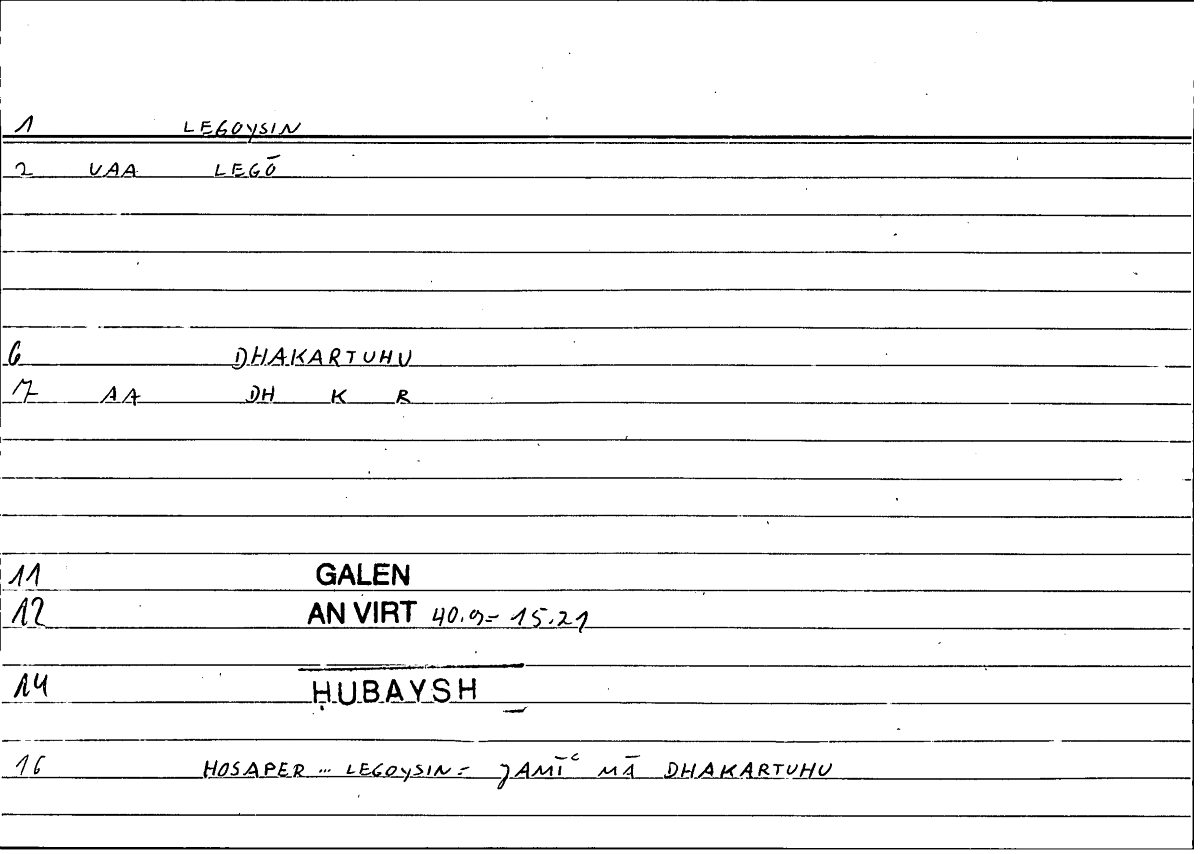 1 LEGOYSIN
2 VAA LEGŌ
6 DHAKARTUHU
7 AA DH K R
11 GALEN
12 AN VIRT 40.9= 15.21
14 ḤUBAYSH
16 HOSAPER ... LEGOYSIN = JAMĪʿ MĀ DHAKARTUHU